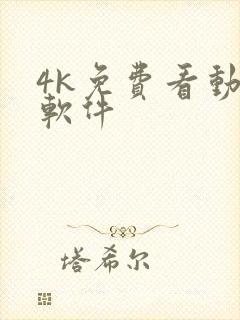 4K免費看動
軟件
塔希尔